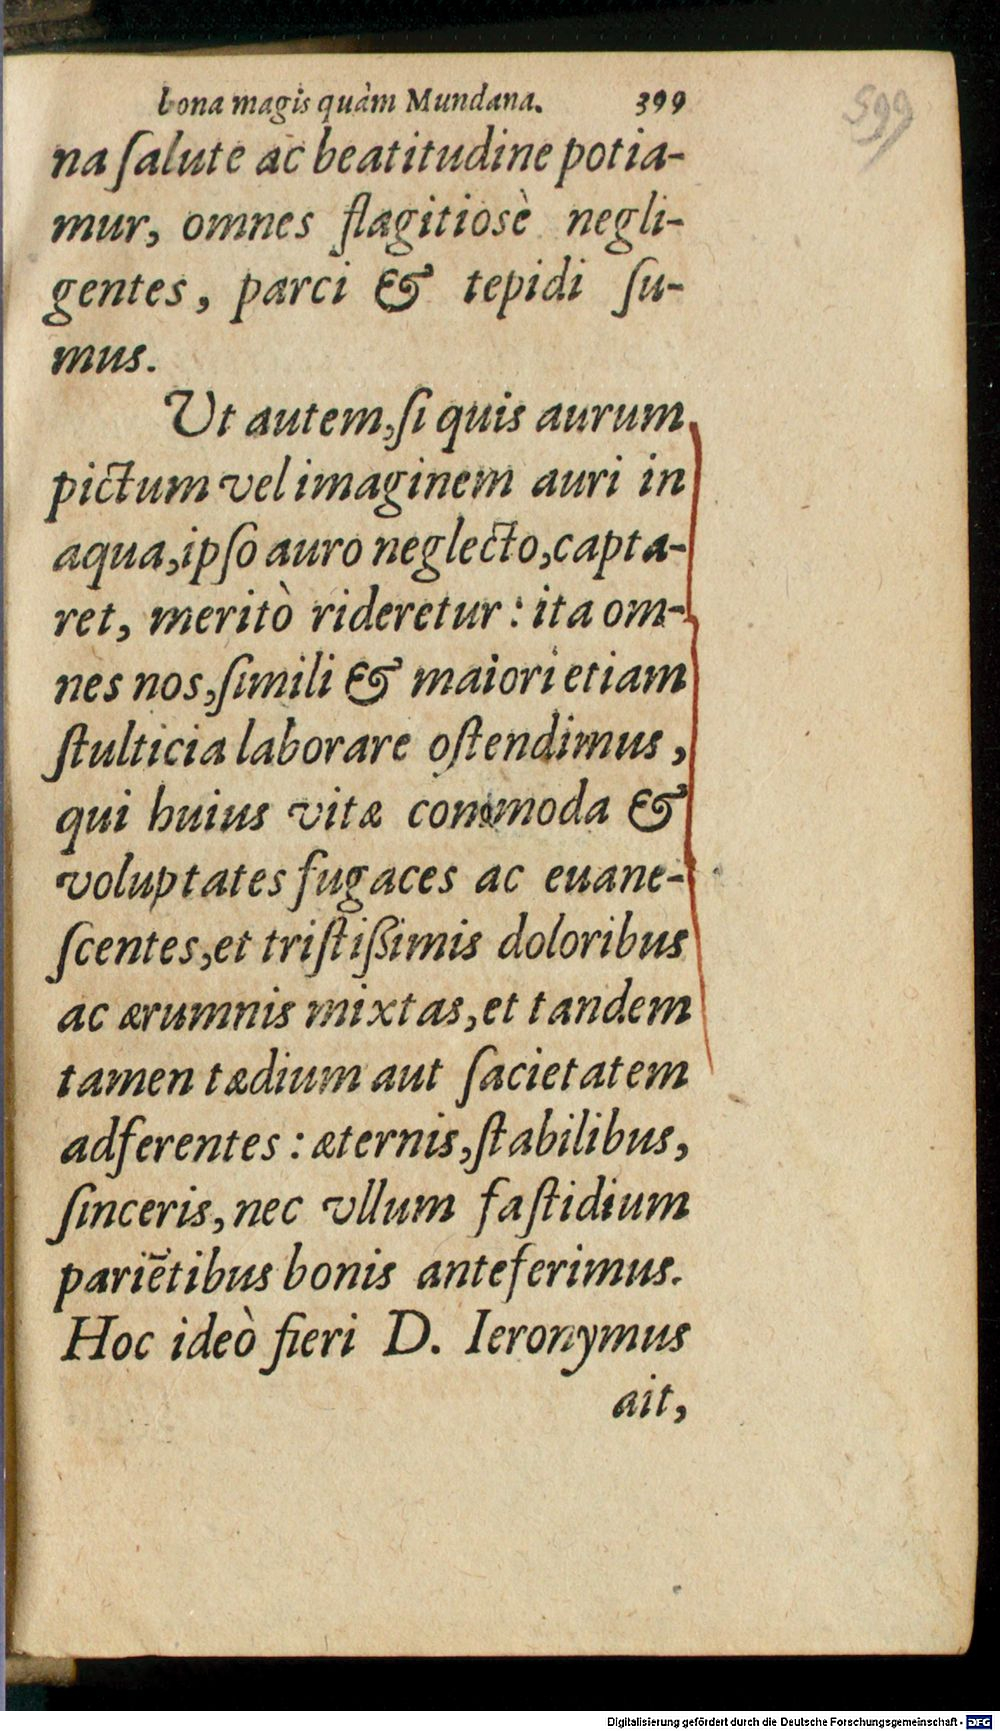 bona magis quàm Mundana. 399
599
na ſalute ac beatitudine potia-
mur, omnes flagitiosè negli-
gentes, parci & tepidi ſu-
mus.
Ut autem, ſi quis aurum
pictum vel imaginem auri in
aqua, ipſo auro neglecto, capta-
ret, meritò rideretur: ita om-
nes nos, ſimili & maiori etiam
ſtulticia laborare oſtendimus,
qui huius vitæ commoda &
voluptates fugaces ac euane-
ſcentes, et triſtiſsimis doloribus
ac ærumnis mixtas, et tandem
tamen tædium aut ſacietatem
adferentes: æternis, ſtabilibus,
ſinceris, nec vllum faſtidium
pariētibus bonis anteferimus.
Hoc ideò fieri D. Ieronymus
ait,
Digitalisierung gefördert durch die Deutsche Forschungsgemeinschaft - DFG